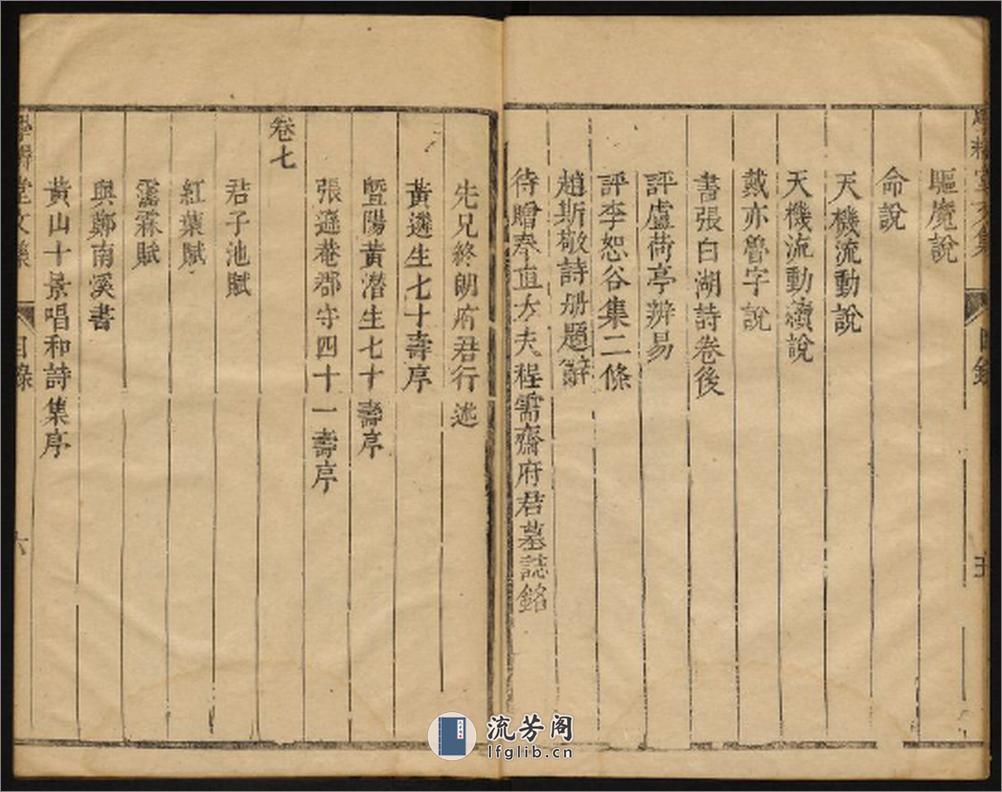 驅魔說
命說
天機流動說
天機流動續說
戴亦魯字說
書張白湖詩卷後
評盧荷亭辨易
評李恕谷集二條
趙斯敬詩册題辭
待贈奉直大夫程霈齋府君墓誌銘
先兄終朗府君行述
黃遴生七十壽序
暨陽黃潛生七十壽序
張遜菴郡守四十一壽序
卷七
君子池賦
紅葉賦
霪霖賦
與鄭南溪書
黃山十景唱和詩集序
目錄
六
流芳阁
lfglib.cn